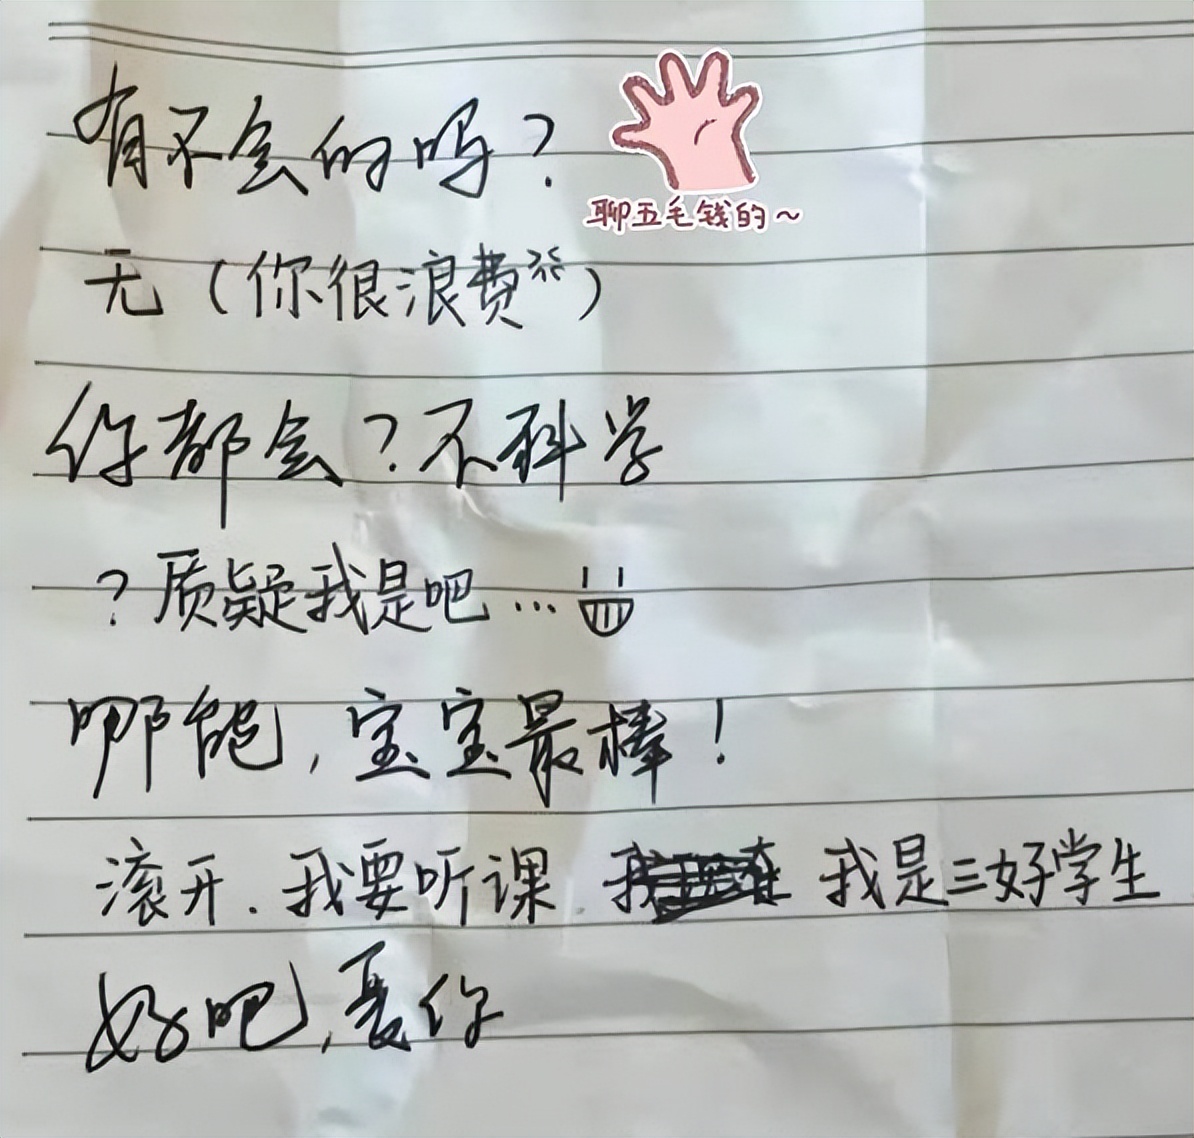 有不会的吗?
聊五毛钱的~
无(你很浪费纸)
你都会?不科学
?质疑我是吧...
哪能,宝宝最棒!
滚开.我要听课.我是三好学生
好吧,爱你